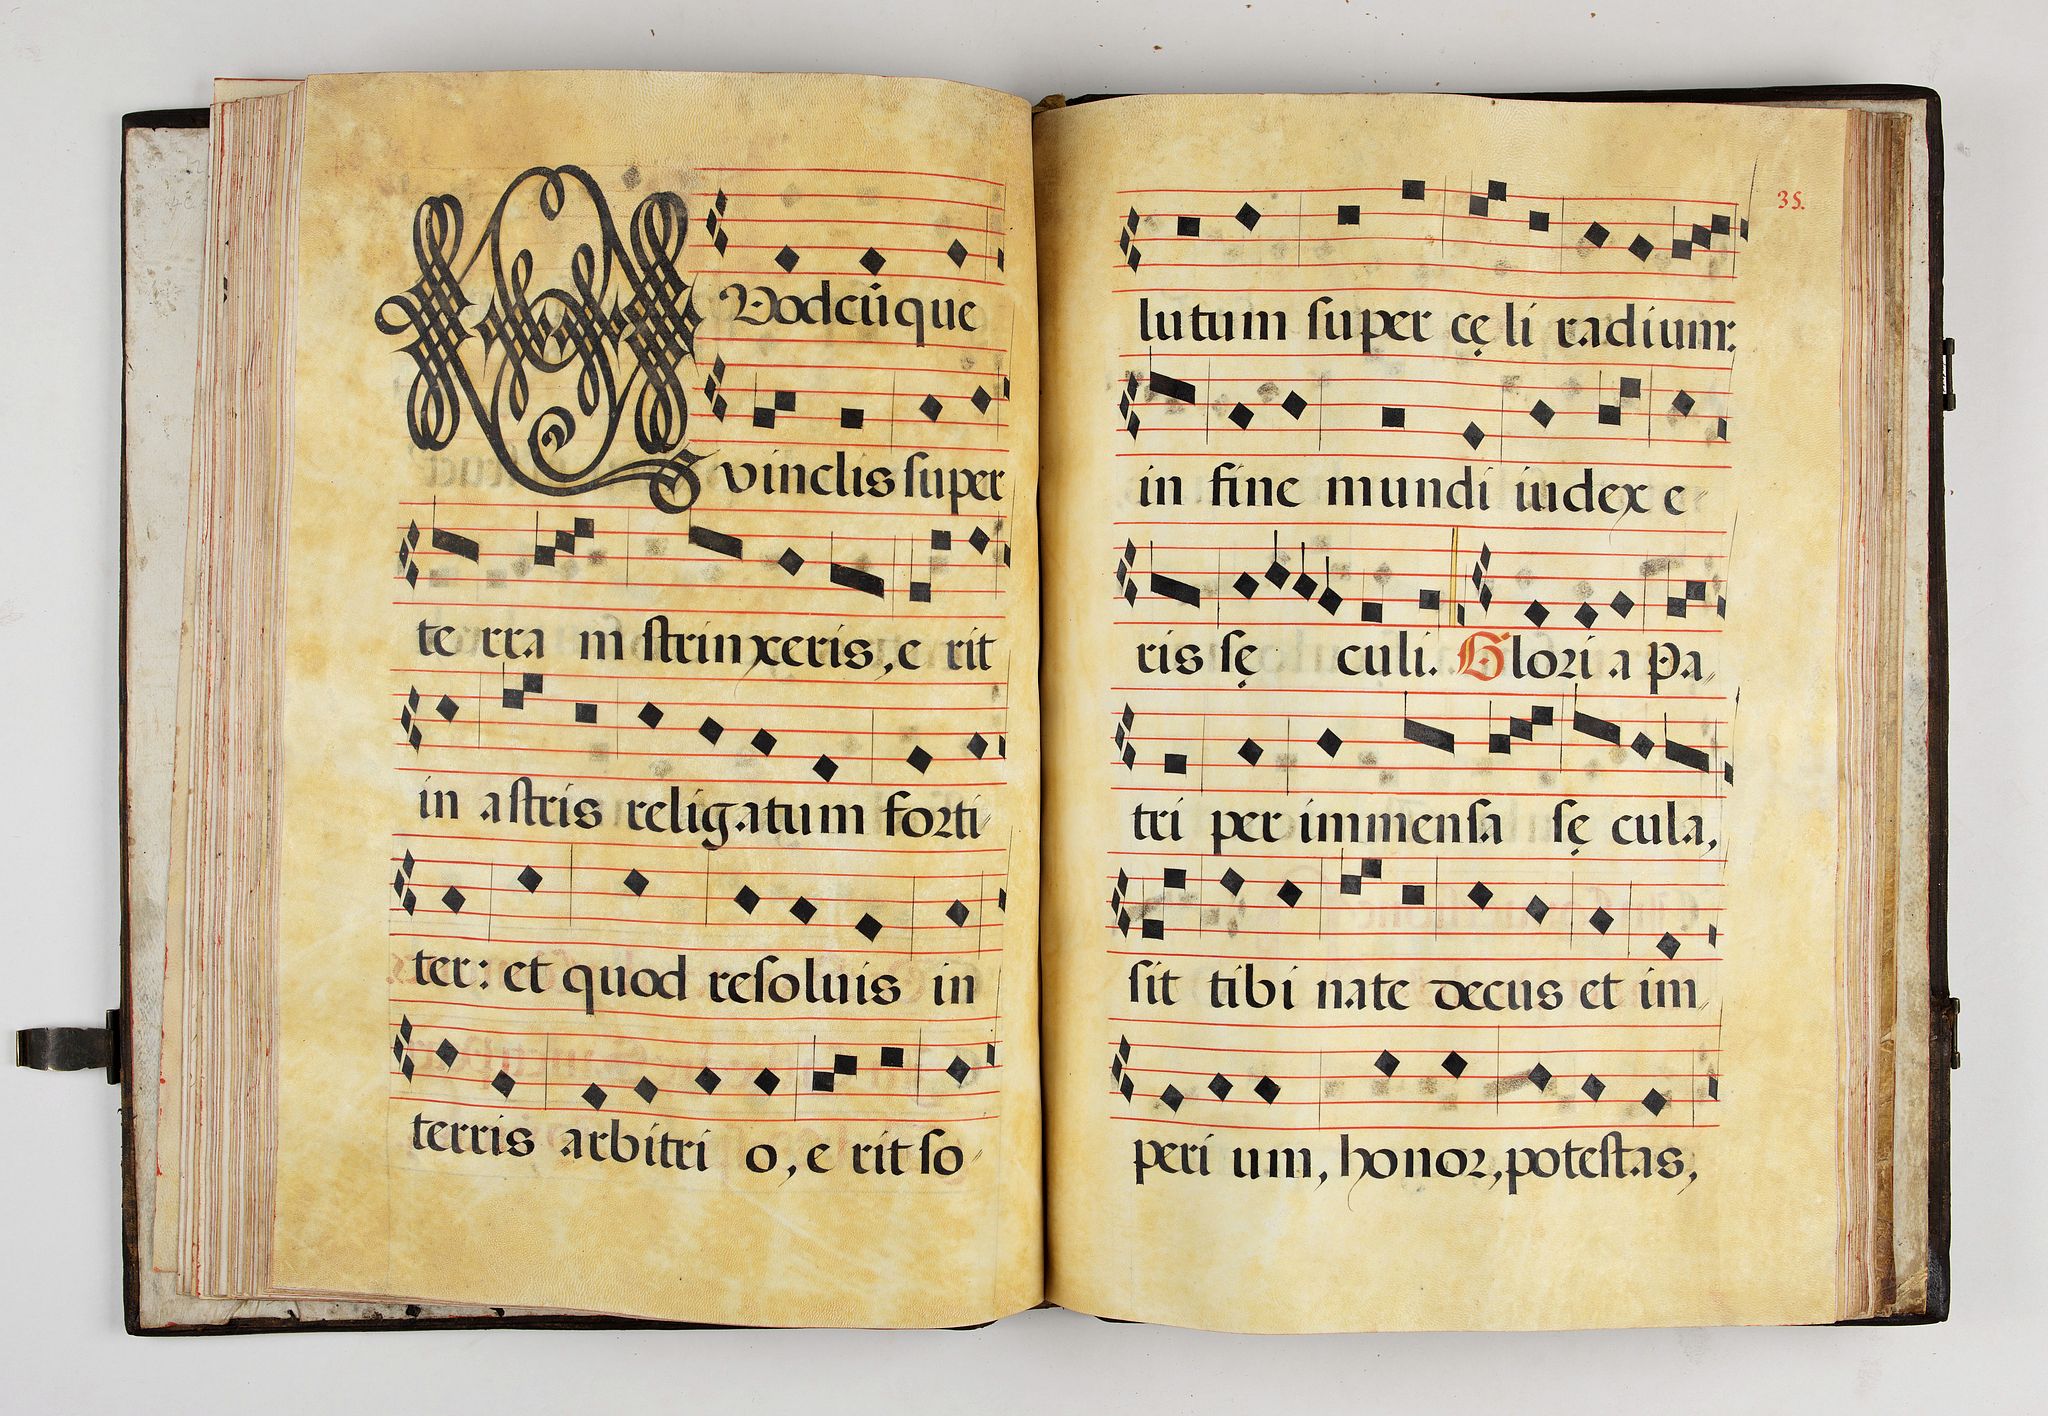 QVodcūque
vinclis super
terram strinxeris, erit
in astris religatum forti-
ter: et quod resoluis in
terris arbitrio, erit so-
35.
lutum super cęli radium:
in fine mundi iudex e-
ris sęculi. Gloria Pa-
tri per immensa sęcula,
sit tibi nate decus et im-
perium, honor, potestas,